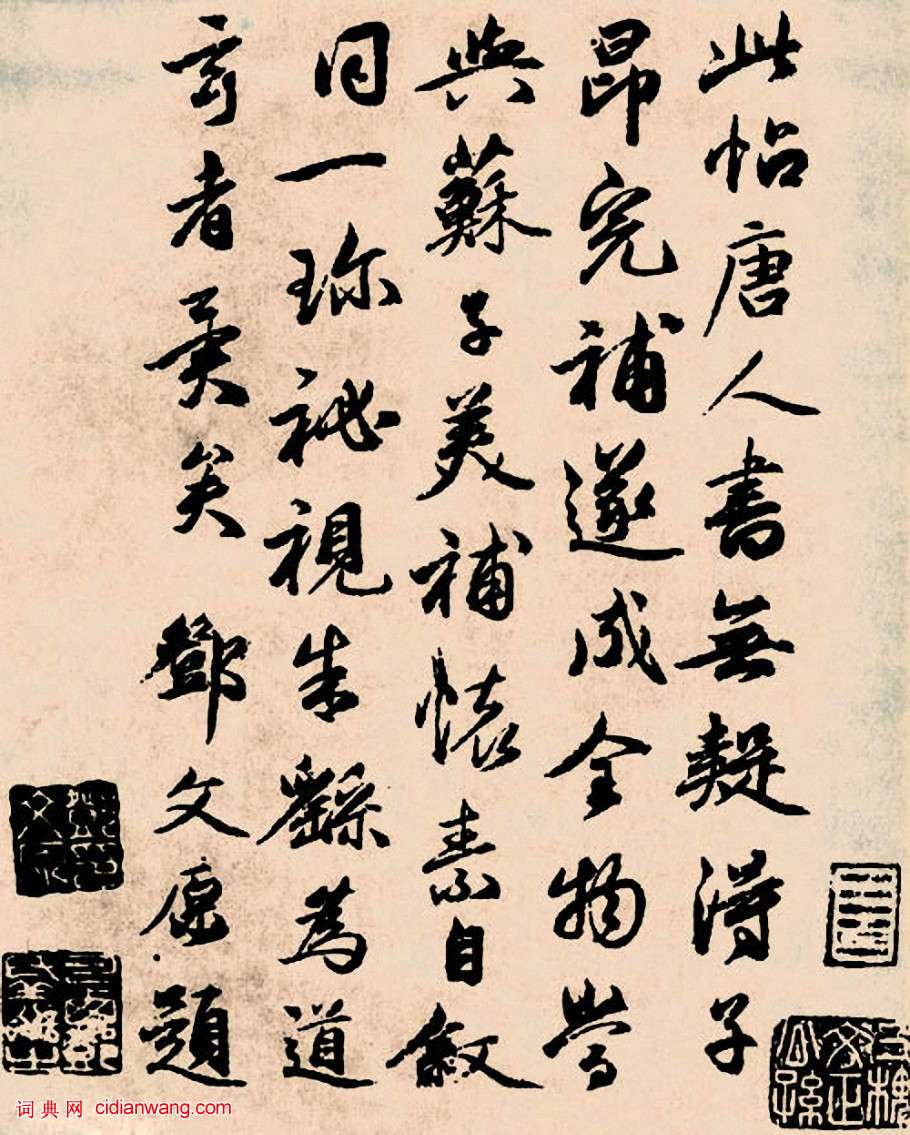 此帖唐人書無疑得子
昂完補遂成全物當
與蘇子美補懷素自敘
同一珍祕視朱繇為道
玄者異矣 鄧文原題
词典网 cidianwang.com